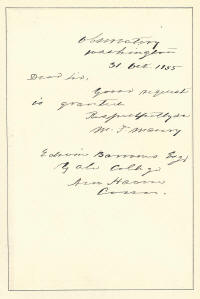 Observatory
Washington
31 Oct 1855
Dear Sir,
Your request
is granted
Respectfully &c
M. F. Maury
Edwin Barrows Esq
Yale College
New Haven
Conn.